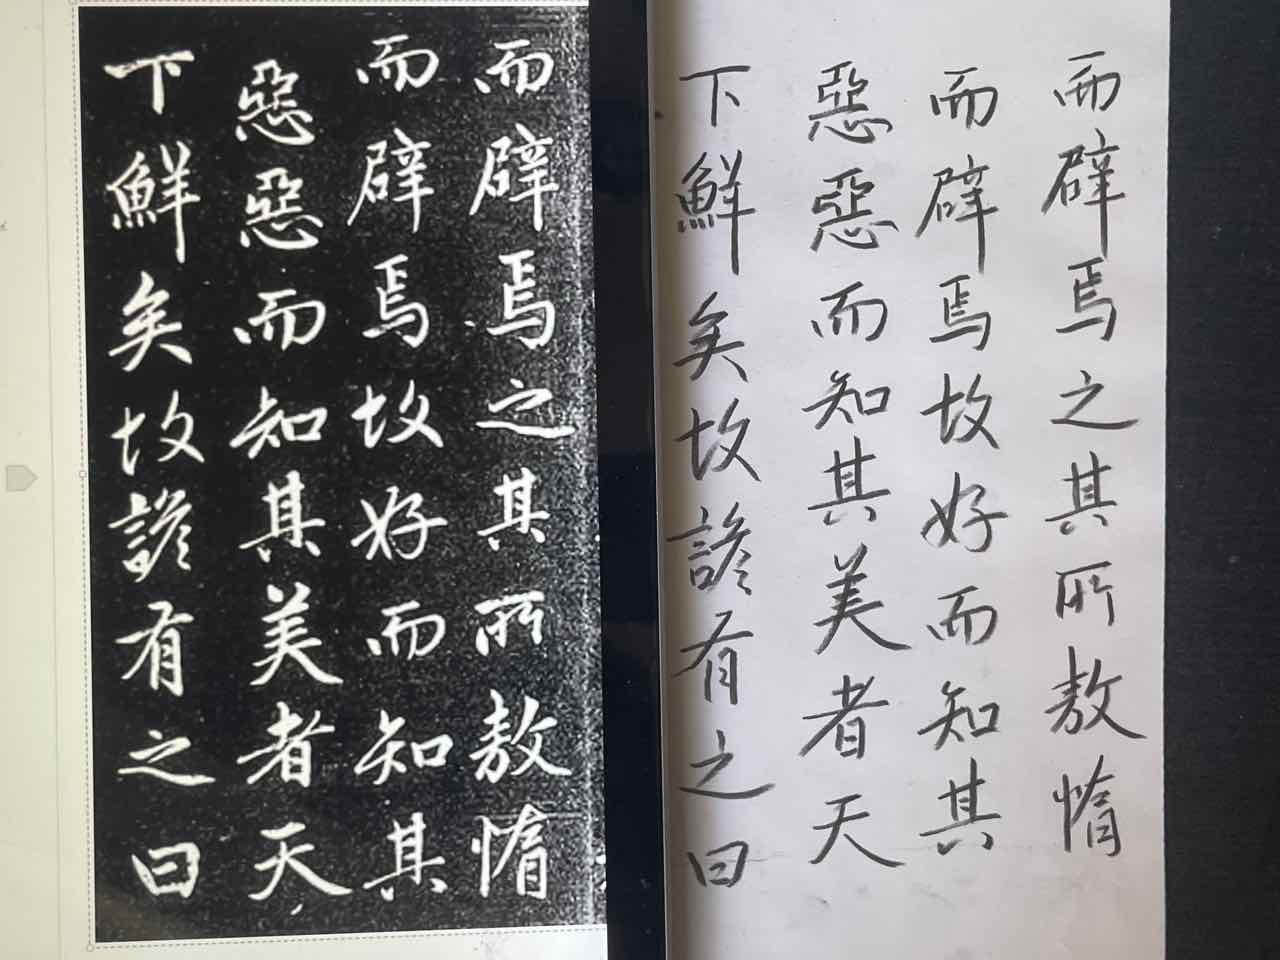 而辟焉之其所敖惰
而辟焉故好而知其
惡惡而知其美者天
下鮮矣故諺有之曰
而辟焉之其所敖惰
而辟焉故好而知其
惡惡而知其美者天
下鮮矣故諺有之曰